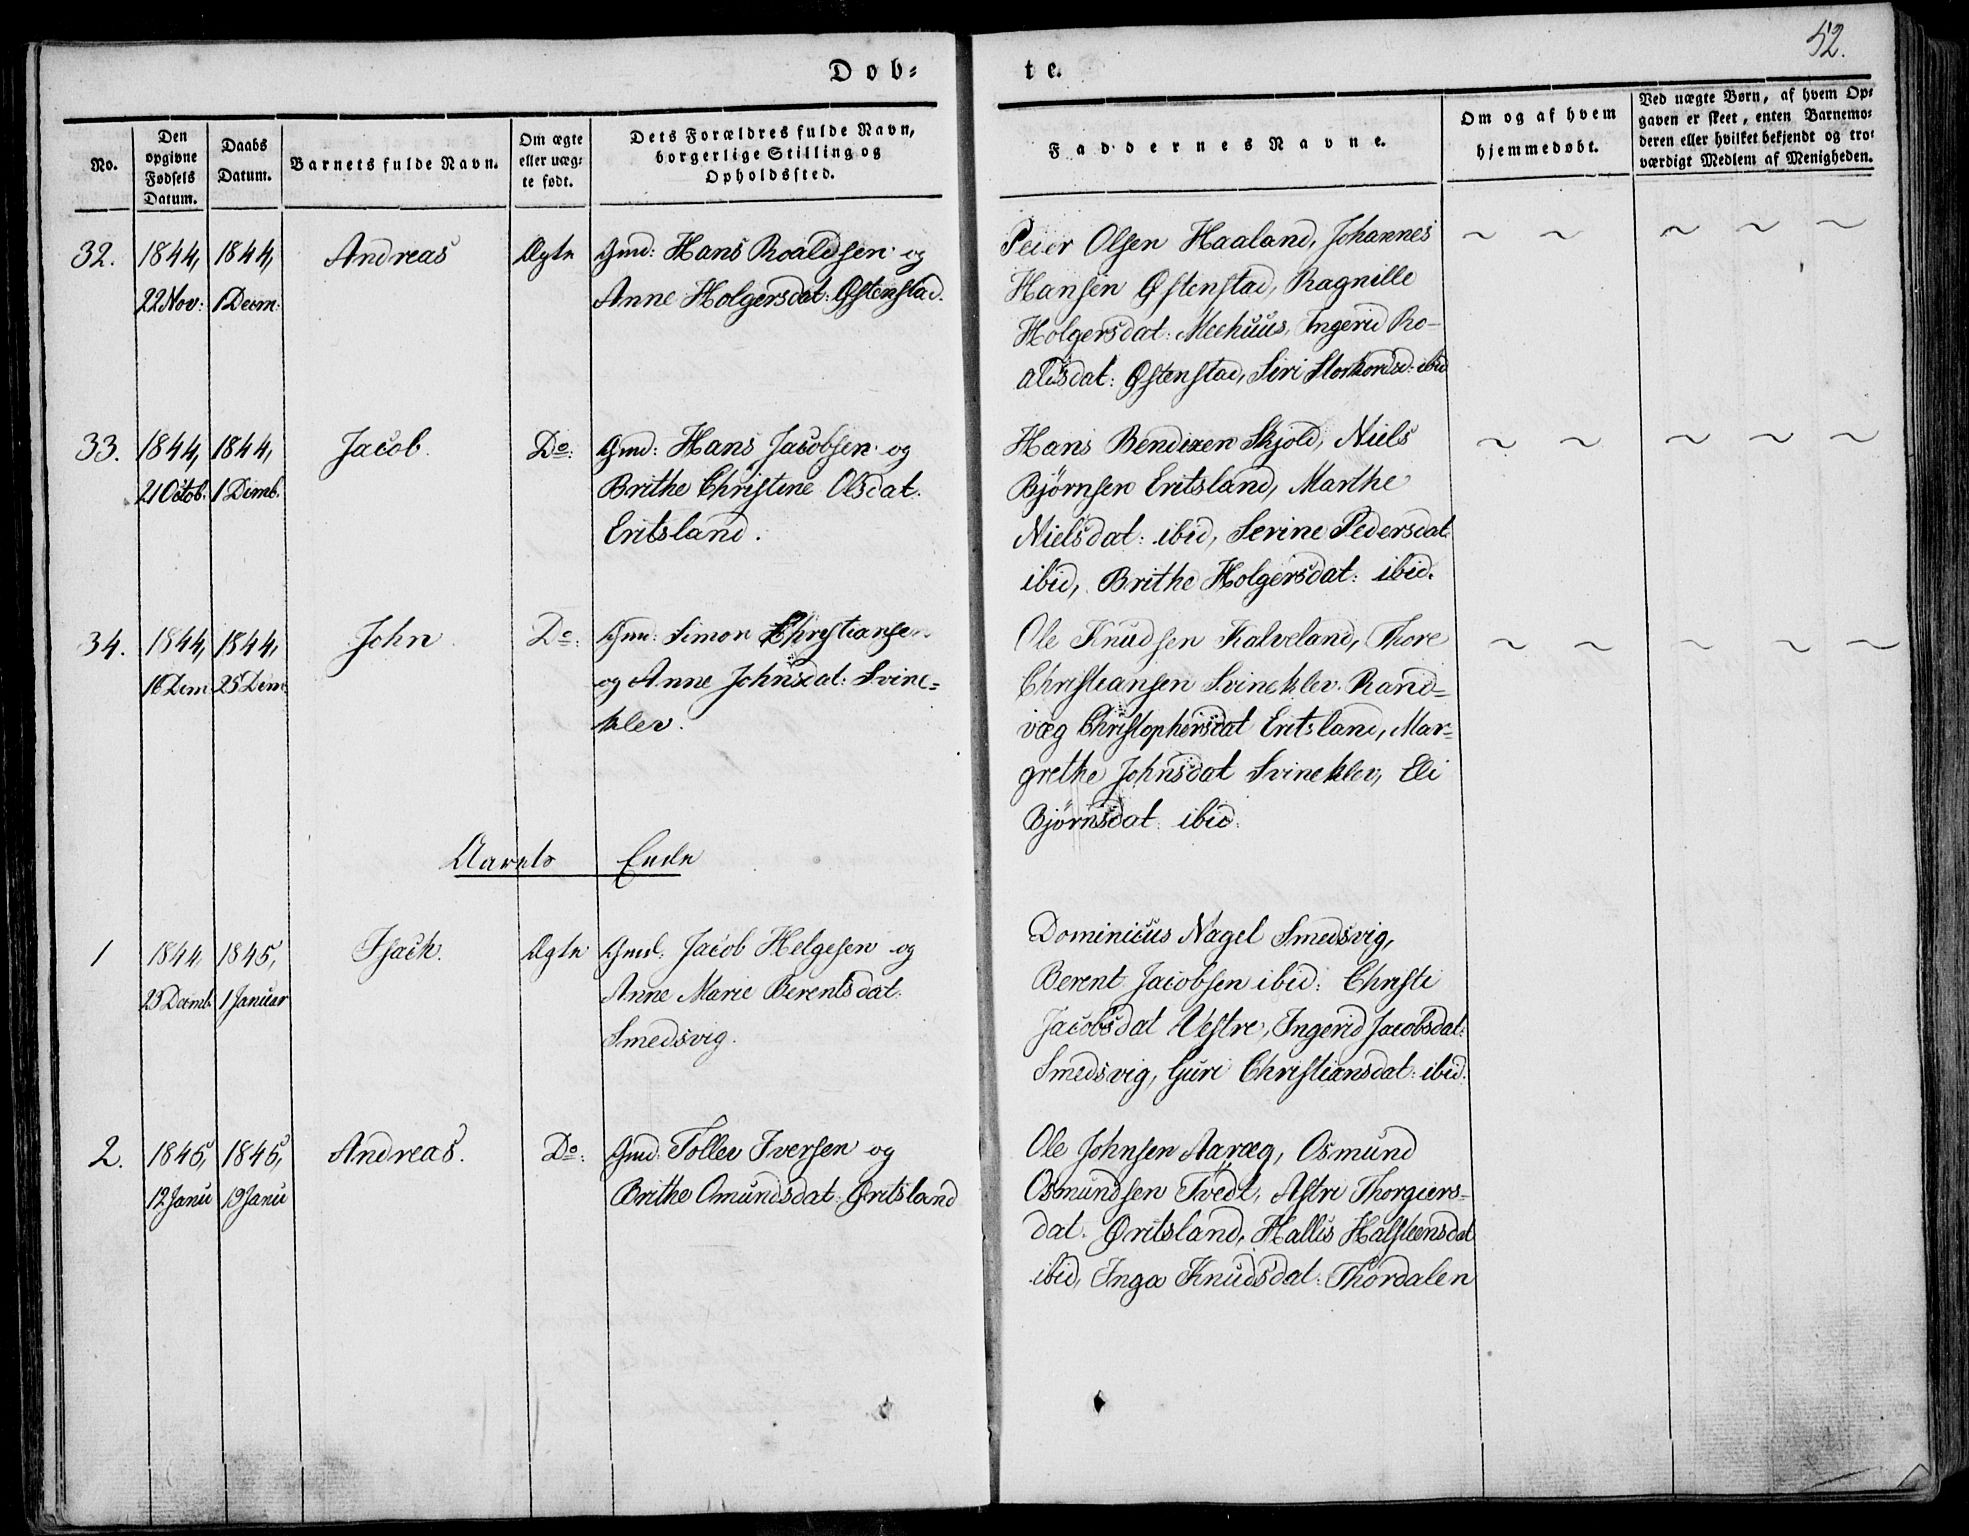 52.
Døb-
te.
No.
Den opgivne Fødsels Datum.
Daabs Datum.
Barnets fulde Navn.
Om ægte eller uæg-te født.
Dets Forældres fulde Navn, borgerlige Stilling og Opholdssted.
Faddernes Navne.
Om og af hvem hjemmedøbt.
Ved uægte Børn, af hvem Op-gaven er skeet, enten Barnemo-deren eller hvilket bekjendt og tro-værdigt Medlem af Menigheden.
32. 1844, 1844, Andreas Ægte Gmd: Hans Roaldsen og
22 Nov: 1 Decm: Anne Holgersdat: Østenstad.
Peier Olsen Haaland, Johannes
Hansen Østenstad, Ragnille
Holgersdat: Meehuus, Ingerid Ro-
aldsdat: Østenstad, Siri ibid
33. 1844, 1844, Jacob. Do: Gmd: Hans Jacobsen og
21 Octob. 1 Dcmb. Brithe Christine Olsdat.
Eritsland.
Hans Bendixen Skjold, Niels
Bjørnsen Eritsland, Marthe
Nielsdat: ibid, Serine Pedersdat:
ibid, Brithe Holgersdat: ibid.
34. 1844, 1844, John Do: Gmd: Simon Christiansen
16 Dcm 25 Dcm og Anne Johnsdat: Svine-
klev.
Ole Knudsen Kalveland, Thore
Christiansen Svineklev. Rand-
væg Christophersdat Eritsland, Mar-
grethe Johnsdat Svineklev, Eli
Bjørnsdat: ibid:
Aarets Ende
1 1844 1845, Isack. Ægte Gmd: Jacob Helgesen og
25 Decmb. 1 Januar Anne Marie Berentsdat:
Smedsvig.
Dominicus Nagel Smedsvig,
Berent Jacobsen ibid: Christi
Jacobsdat Vestre, Ingerid Jacobsdat:
Smedsvig, Guri Christiansdat: ibid:
2. 1845, 1845, Andreas. Do: Gmd: Tollev Iversen og
12 Janu 19 Janu Brithe Omundsdat: Øritsland
Ole Johnsen Aaræg, Osmund
Osmundsen Tvedt, Astri Thorgiers-
dat. Øritsland, Hallis Halsteensdat
ibid, Inga Knudsdat: Thordalen